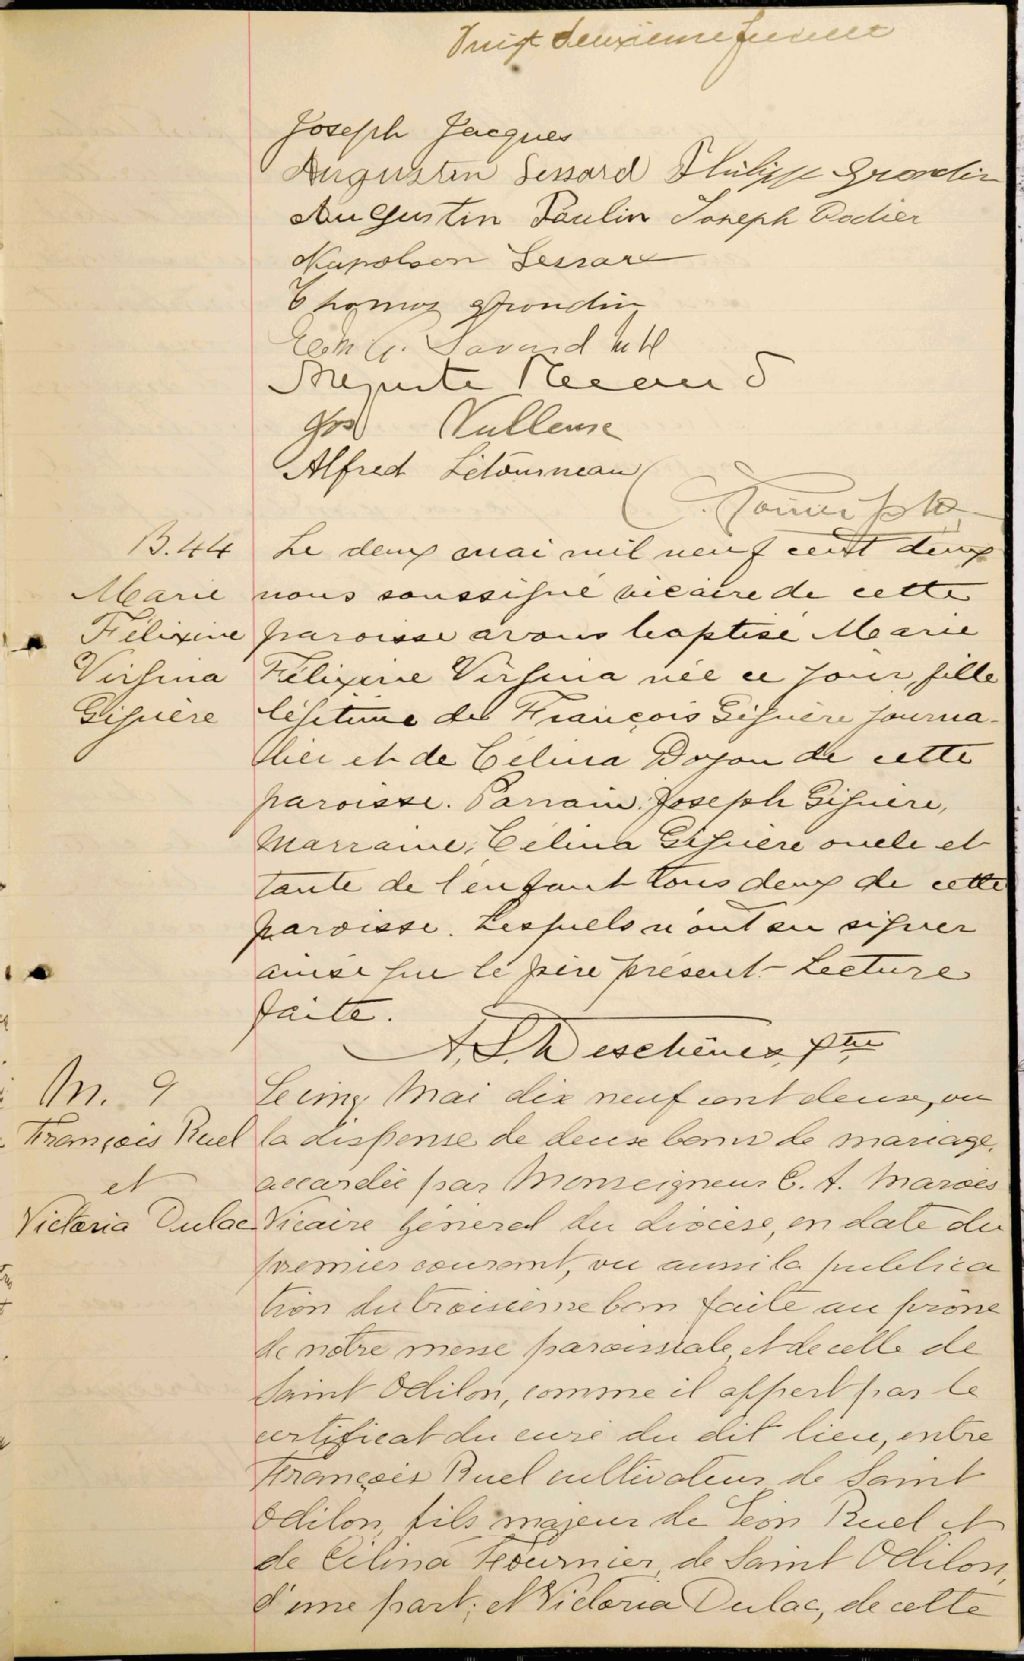 Vingt deuxième feuillet
Joseph Jacques
Augustin Lessard Philippe Grondin
Augustin Poulin Joseph Rodier
Napoleon Lessard
Thomas Grondin
Savard
Auguste
Jos
Alfred Létourneau
B. 44
Marie
Félixine
Virginia
Giguère
Le deux mai mil neuf cent deux
nous soussigné vicaire de cette
paroisse avons baptisé Marie
Félixine Virginia née ce jour, fille
légitime de François Giguère journa-
lier et de Célina Doyon de cette
paroisse. Parrain: Joseph Giguère,
Marraine; Célina Giguère oncle et
tante de l'enfant tous deux de cette
paroisse. Lesquels n'ont su signer
ainsi que le père présent- Lecture
faite.
A. S. Deschênes, ptre
M. 9
François Ruel
et
Victoria Dulac
Le cinq Mai dix neuf cent deux, vu
la dispense de deux bans de mariage,
accordée par Monseigneur C. A. Marois
Vicaire Général du diocèse, en date du
premier courant, vu aussi la publica
tion du troisième ban faite au prône
de notre messe paroissiale, et de celle de
Saint Odilon, comme il appert par le
certificat du curé du dit lieu, entre
François Ruel cultivateur de Saint
Odilon, fils majeur de Léon Ruel et
de Célina Fournier, de Saint Odilon,
d'une part; et Victoria Dulac, de cette